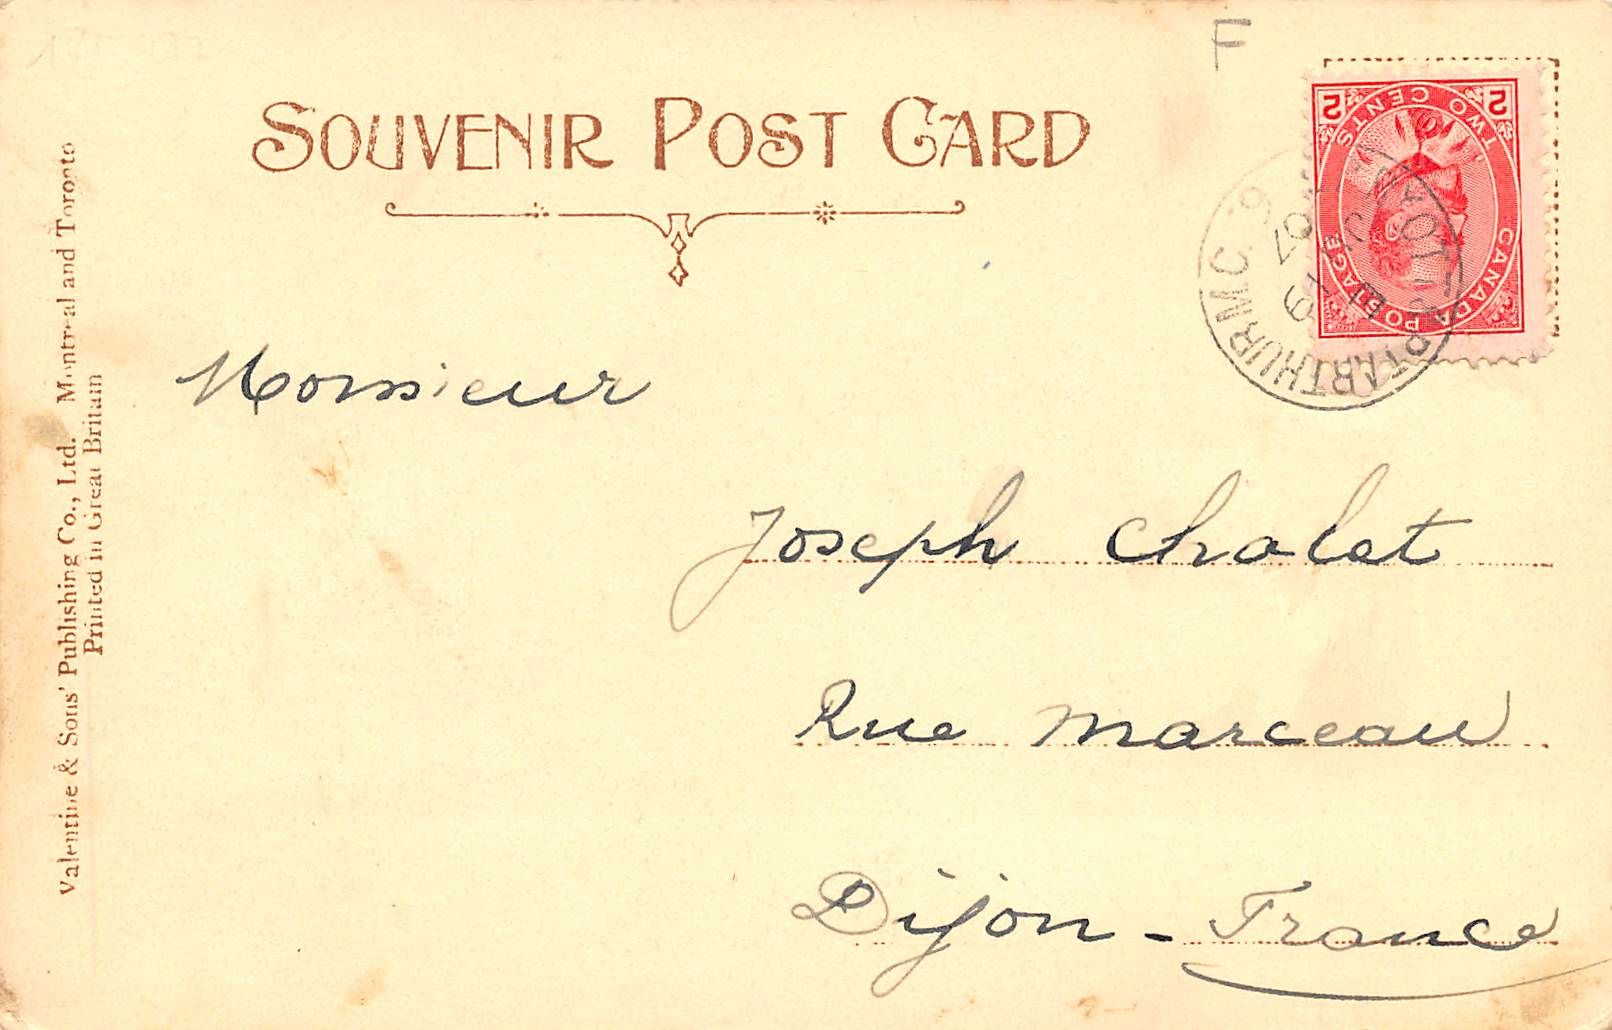 F
SOUVENIR POST CARD
2 TWO CENTS 2
CANADA POSTAGE
Monsieur
Joseph Chalet
Rue Marceau
Dijon - France
Valentine & Sons' Publishing Co., Ltd. Montreal and Toronto
Printed in Great Britain